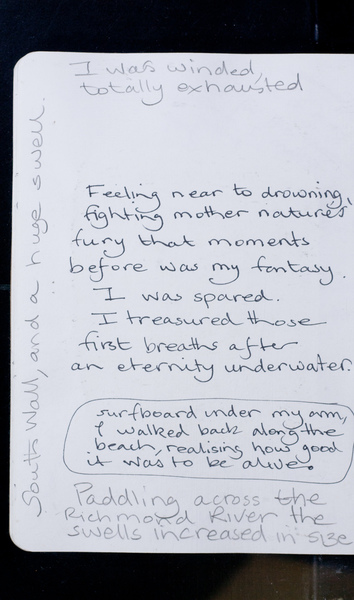 I was winded,
totally exhausted
Feeling near to drowning,
fighting mother nature's
fury that moments
before was my fantasy.
I was spared.
I treasured those
first breaths after
an eternity underwater.
surfboard under my arm,
I walked back along the
beach, realising how good
it was to be alive.
Paddling across the
Richmond River the
swells increased in size
South Wall, and a huge swell.